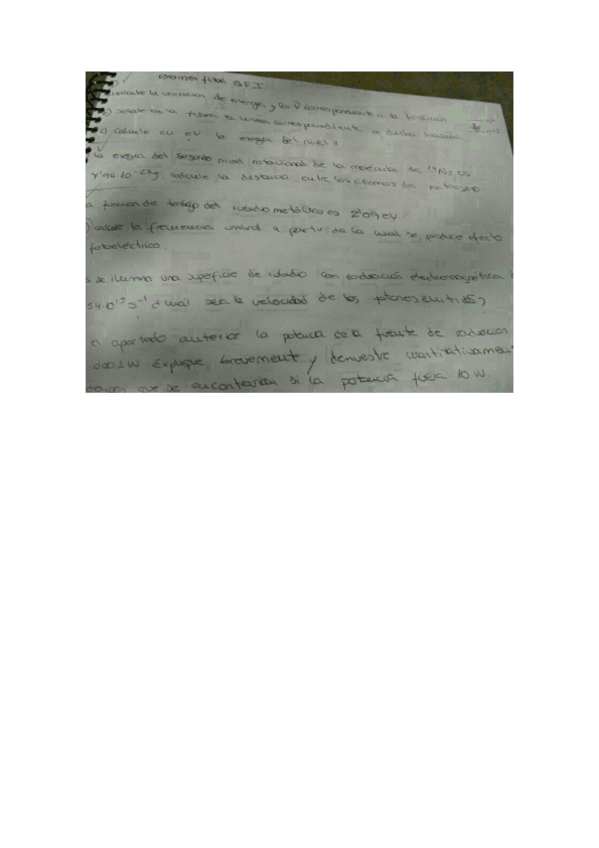 examen final QFI
calcule la variación de energía y la ν correspondiente a la transición
b) señale en la figura la línea correspondiente a dicha transición
c) calcule en eV la energía del nivel 3
la energía del segundo nivel rotacional de la molécula de ¹⁴N₂ es
10⁻²³ J. calcule la distancia entre los átomos de nitrógeno.
a función de trabajo del rubidio metálico es 2'09 eV
calcule la frecuencia umbral a partir de la cual se produce efecto
fotoeléctrico.
se ilumina una superficie de rubidio con radiación electromagnética
10¹⁵ s⁻¹ ¿cual será la velocidad de los fotones emitidos?
el apartado anterior la potencia de la fuente de radiación
001 W. Explique brevemente y demuestre cuantitativamen
que se encontrarían si la potencia fuera 10 W.